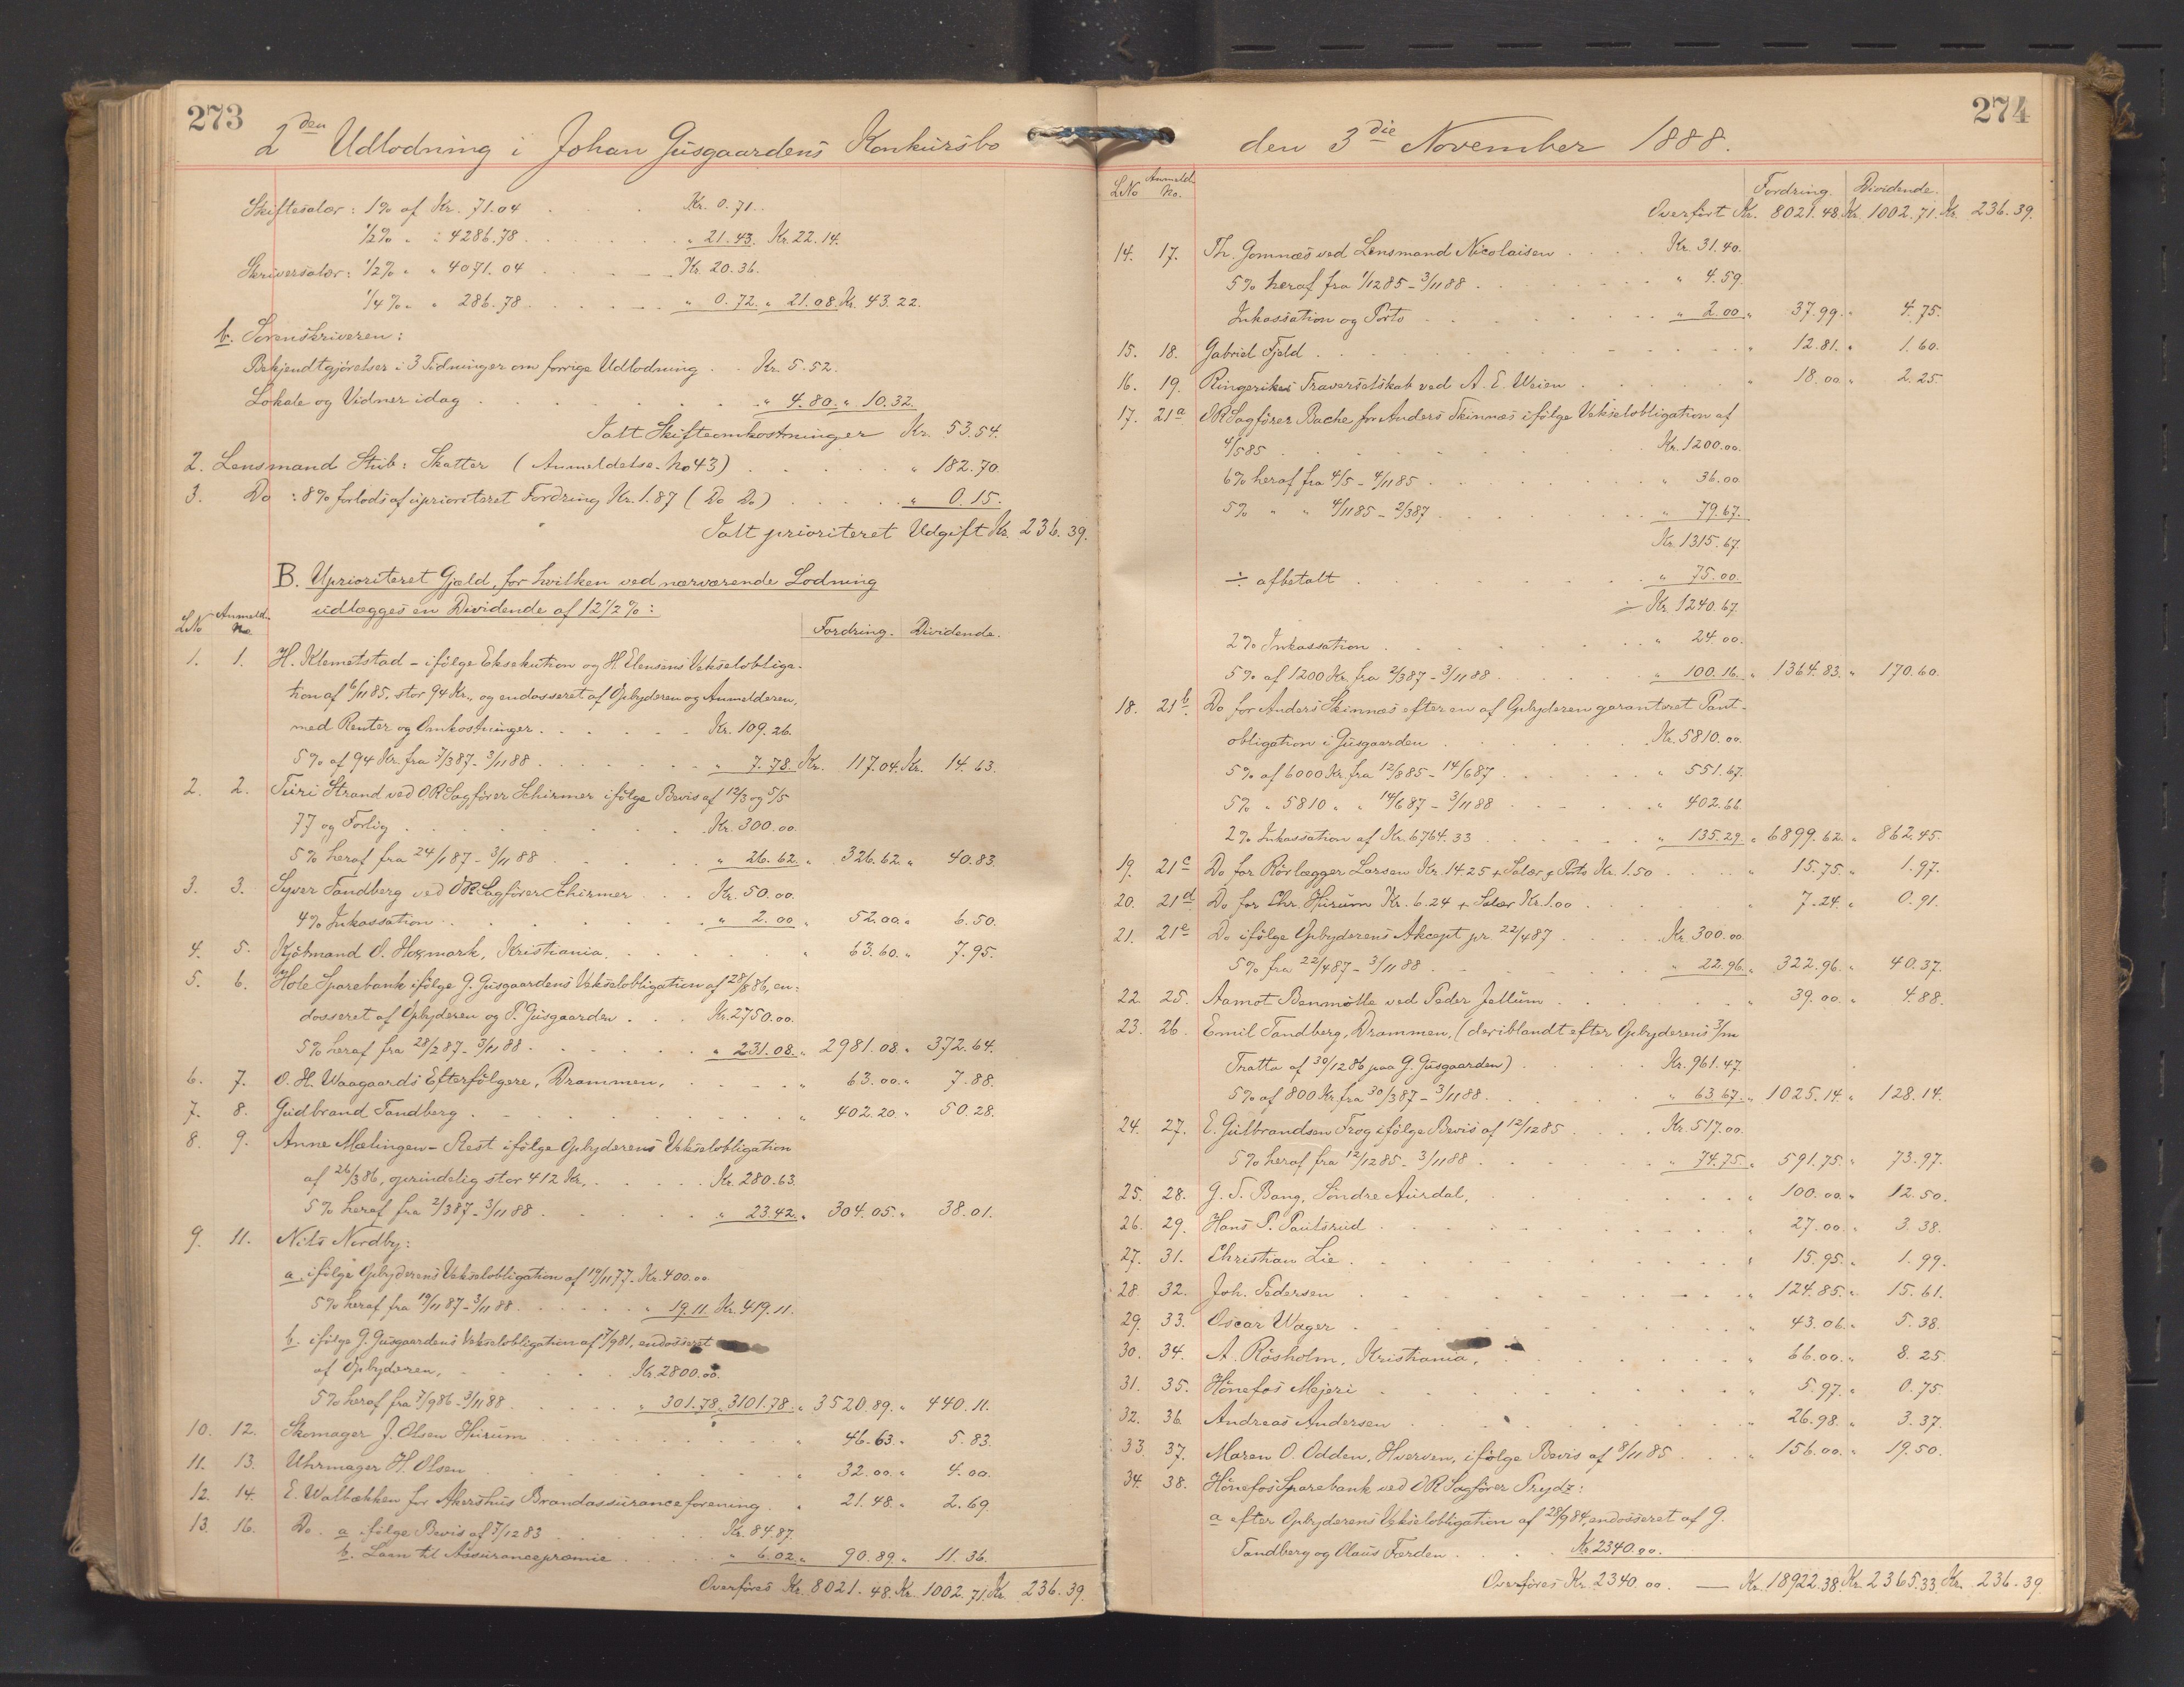 273
2den Udlodning i Johan Gusgaardens Konkursbo
Skiftesalær: 1% af Kr. 71.04 . . . Kr. 0.71.
1/2% " : 4286.78 . . . " 21.43. Kr. 22.14.
Skriversalær: 1/2% " " 4071.04 . . . Kr. 20.36.
1/4% " " 286.78 . . . " 0.72. " 21.08. Kr. 43.22.
b. Sorenskriveren:
Bekjendtgjörelser i 3 Tidninger om forrige Udlodning . . Kr. 5.52.
Lokale og Vidner idag . . . " 4.80. " 10.32.
Ialt Skifteomkostninger Kr. 53.54.
2. Lensmand Stub: Skatter (Anmeldelse No 43) . . . " 182.70.
3. Do : 8% forlods af uprioriteret Fordring Kr. 1.87 (Do Do) . . . " 0.15.
Ialt prioriteret Udgift Kr. 236.39.
B. Uprioriteret Gjæld, for hvilken ved nærværende Lodning
udlægges en Dividende af 12 1/2 %:
LNo Anmeld. No Fordring. Dividende.
1. 1. H. Klemetstad – ifölge Eksekution og H. Elensens Vekselobliga-
tion af 6/11 85, stor 94 Kr., og endosseret af Opbyderen og Anmelderen,
med Renter og Omkostninger . . . Kr. 109.26.
5% af 94 Kr. fra 7/3 87 - 3/11 88 . . . " 7.78. Kr. 117.04. Kr. 14.63.
2. 2. Turi Strand ved ORSagförer Schirmer ifölge Bevis af 12/3 og 5/5
77 og Forlig . . . Kr. 300.00.
5% heraf fra 24/1 87 - 3/11 88 . . . " 26.62. " 326.62. " 40.83.
3. 3. Syver Tandberg ved ORSagförer Schirmer . . . Kr. 50.00.
4% Inkassation . . . " 2.00 " 52.00. " 6.50.
4. 5. Kjötmand O. Hoxmark, Kristiania. . . . " 63.60. " 7.95.
5. 6. Hole Sparebank ifölge G. Gusgaardens Vekselobligation af 28/8 86, en-
dosseret af Opbyderen og P. Gusgaarden . . . Kr. 2750.00.
5% heraf fra 28/2 87 - 3/11 88 . . . " 231.08. " 2981.08. " 372.64.
6. 7. O. H. Waagaards Efterfölgere, Drammen, . . . " 63.00. " 7.88.
7. 8. Gudbrand Tandberg . . . " 402.20. " 50.28.
8. 9. Anne Mælingen – Rest ifölge Opbyderens Vekselobligation
af 26/3 86, oprindelig stor 412 Kr., . . . Kr. 280.63.
5% heraf fra 2/3 87 - 3/11 88 . . . " 23.42. " 304.05. " 38.01.
9. 11. Nils Nordby:
a. ifölge Opbyderens Vekselobligation af 19/11 77 - Kr. 400.00.
5% heraf fra 19/11 87 - 3/11 88 . . . " 19.11. Kr. 419.11.
b. ifölge G. Gusgaardens Vekselobligation af 7/9 81, endosseret
af Opbyderen, . . . Kr. 2800.00.
5% heraf fra 7/9 86 - 3/11 88 . . . " 301.78. " 3101.78. " 3520.89. " 440.11.
10. 12. Skomager J. Olsen Hurum . . . " 46.63. " 5.83.
11. 13. Uhrmager H. Olsen . . . " 32.00. " 4.00.
12. 14. E. Walbækken for Akershus Brandassuranceforening . " 21.48. " 2.69.
13. 16. Do. a. ifölge Bevis af 7/12 83 . . . Kr. 84.87.
b. Laan til Assurancepræmie . . . " 6.02. " 90.89. " 11.36.
Overföres Kr. 8021.48. Kr. 1002.71. Kr. 236.39.
274
den 3die November 1888.
LNo Anmeld. No. Fordring. Dividende.
Overfört Kr. 8021.48. Kr. 1002.71. Kr. 236.39.
14. 17. Th. Gomnæs ved Lensmand Nicolaisen . . . Kr. 31.40.
5% heraf fra 1/12 85 - 3/11 88 . . . " 4.59.
Inkassation og Porto . . . " 2.00. " 37.99. " 4.75.
15. 18. Gabriel Fjeld . . . " 12.81. " 1.60.
16. 19. Ringerikes Traverselskab ved A. E. Weien . . . " 18.00. " 2.25.
17. 21a ORSagförer Bache for Anders Skinnæs ifölge Vekselobligation af
4/5 85 . . . Kr. 1200.00.
6% heraf fra 4/5 - 4/11 85 . . . " 36.00
5% " " 4/11 85 - 2/3 87 . . . " 79.67.
Kr. 1315.67.
÷ afbetalt . . . " 75.00.
Kr. 1240.67.
2% Inkassation . . . " 24.00.
5% af 1200 Kr. fra 2/3 87 - 3/11 88 . . . " 100.16. " 1364.83. " 170.60.
18. 21b. Do for Anders Skinnæs efter en af Opbyderen garanteret Pant-
obligation i Gusgaarden . . . Kr. 5810.00.
5% af 6000 Kr. fra 12/8 85 - 14/6 87 . . . " 551.67.
5% " 5810 " " 14/6 87 - 3/11 88 . . . " 402.66.
2% Inkassation af Kr. 6764.33 . . . " 135.29. " 6899.62. " 862.45.
19. 21c Do for Rörlægger Larsen Kr. 14.25 + Salær & Porto Kr. 1.50 . . . " 15.75. " 1.97.
20. 21d Do for Chr. Hurum Kr. 6.24 + Salær Kr. 1.00 . . . " 7.24. " 0.91.
21. 21e Do ifölge Opbyderens Akcept pr. 22/4 87 . . . Kr. 300.00
5% fra 22/4 87 - 3/11 88 . . . " 22.96. " 322.96. " 40.37.
22. 25. Aamot Benmölle ved Peder Jellum . . . " 39.00. " 4.88.
23. 26. Emil Tandberg, Drammen, (deriblandt efter Opbyderens 3/m
Tratta af 30/12 86 paa G. Gusgaarden) . . . Kr. 961.47.
5% af 800 Kr. fra 30/3 87 - 3/11 88 . . . " 63.67. " 1025.14. " 128.14.
24. 27. E. Gulbrandsen Frog ifölge Bevis af 12/12 85 . . . Kr. 517.00.
5% heraf fra 12/12 85 - 3/11 88 . . . " 74.75. " 591.75. " 73.97.
25. 28. G. T. Bang, Söndre Aurdal, . . . " 100.00. " 12.50.
26. 29. Hans P. Pautsrud . . . " 27.00. " 3.38.
27. 31. Christian Lie . . . " 15.95. " 1.99.
28. 32. Joh. Pedersen . . . " 124.85. " 15.61.
29. 33. Oscar Wager . . . " 43.06. " 5.38.
30. 34. A. Rösholm, Kristiania, . . . " 66.00. " 8.25.
31. 35. Hönefos Mejeri . . . " 5.97. " 0.75.
32. 36. Andreas Andersen . . . " 26.98. " 3.37.
33. 37. Maren O. Odden, Hverven, ifölge Bevis af 8/11 85 . . . " 156.00. " 19.50.
34. 38. Hönefos Sparebank ved ORSagförer Prydz:
a efter Opbyderens Vekselobligation af 28/9 84, endosseret af G.
Tandberg og Olaus Færden . . . Kr. 2340.00.
Overföres Kr. 2340.00. — Kr. 18922.38. Kr. 2365.33. Kr. 236.39.